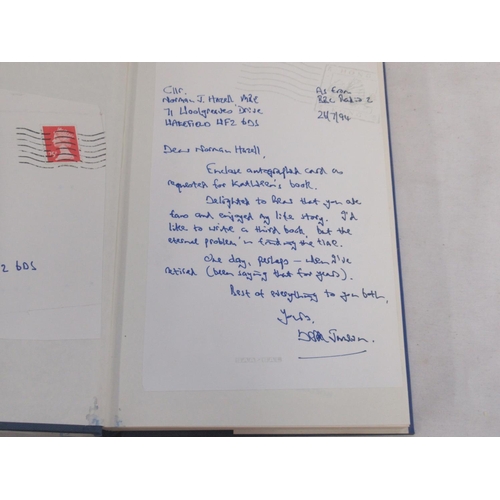 Cllr.
Norman J. Hazell MBE
71 Woolgreaves Drive
WAKEFIELD WF2 6DS
As from
BBC Radio 2
24/7/94
Dear Norman Hazell,
Enclose autographed card as
requested for Kathleen's book.
Delighted to hear that you are
fans and enjoyed my life story. I'd
like to write a third book, but the
eternal problem is finding the time.
One day, perhaps — when I've
retired (been saying that for years).
Best of everything to you both,
Yours,
2 6DS